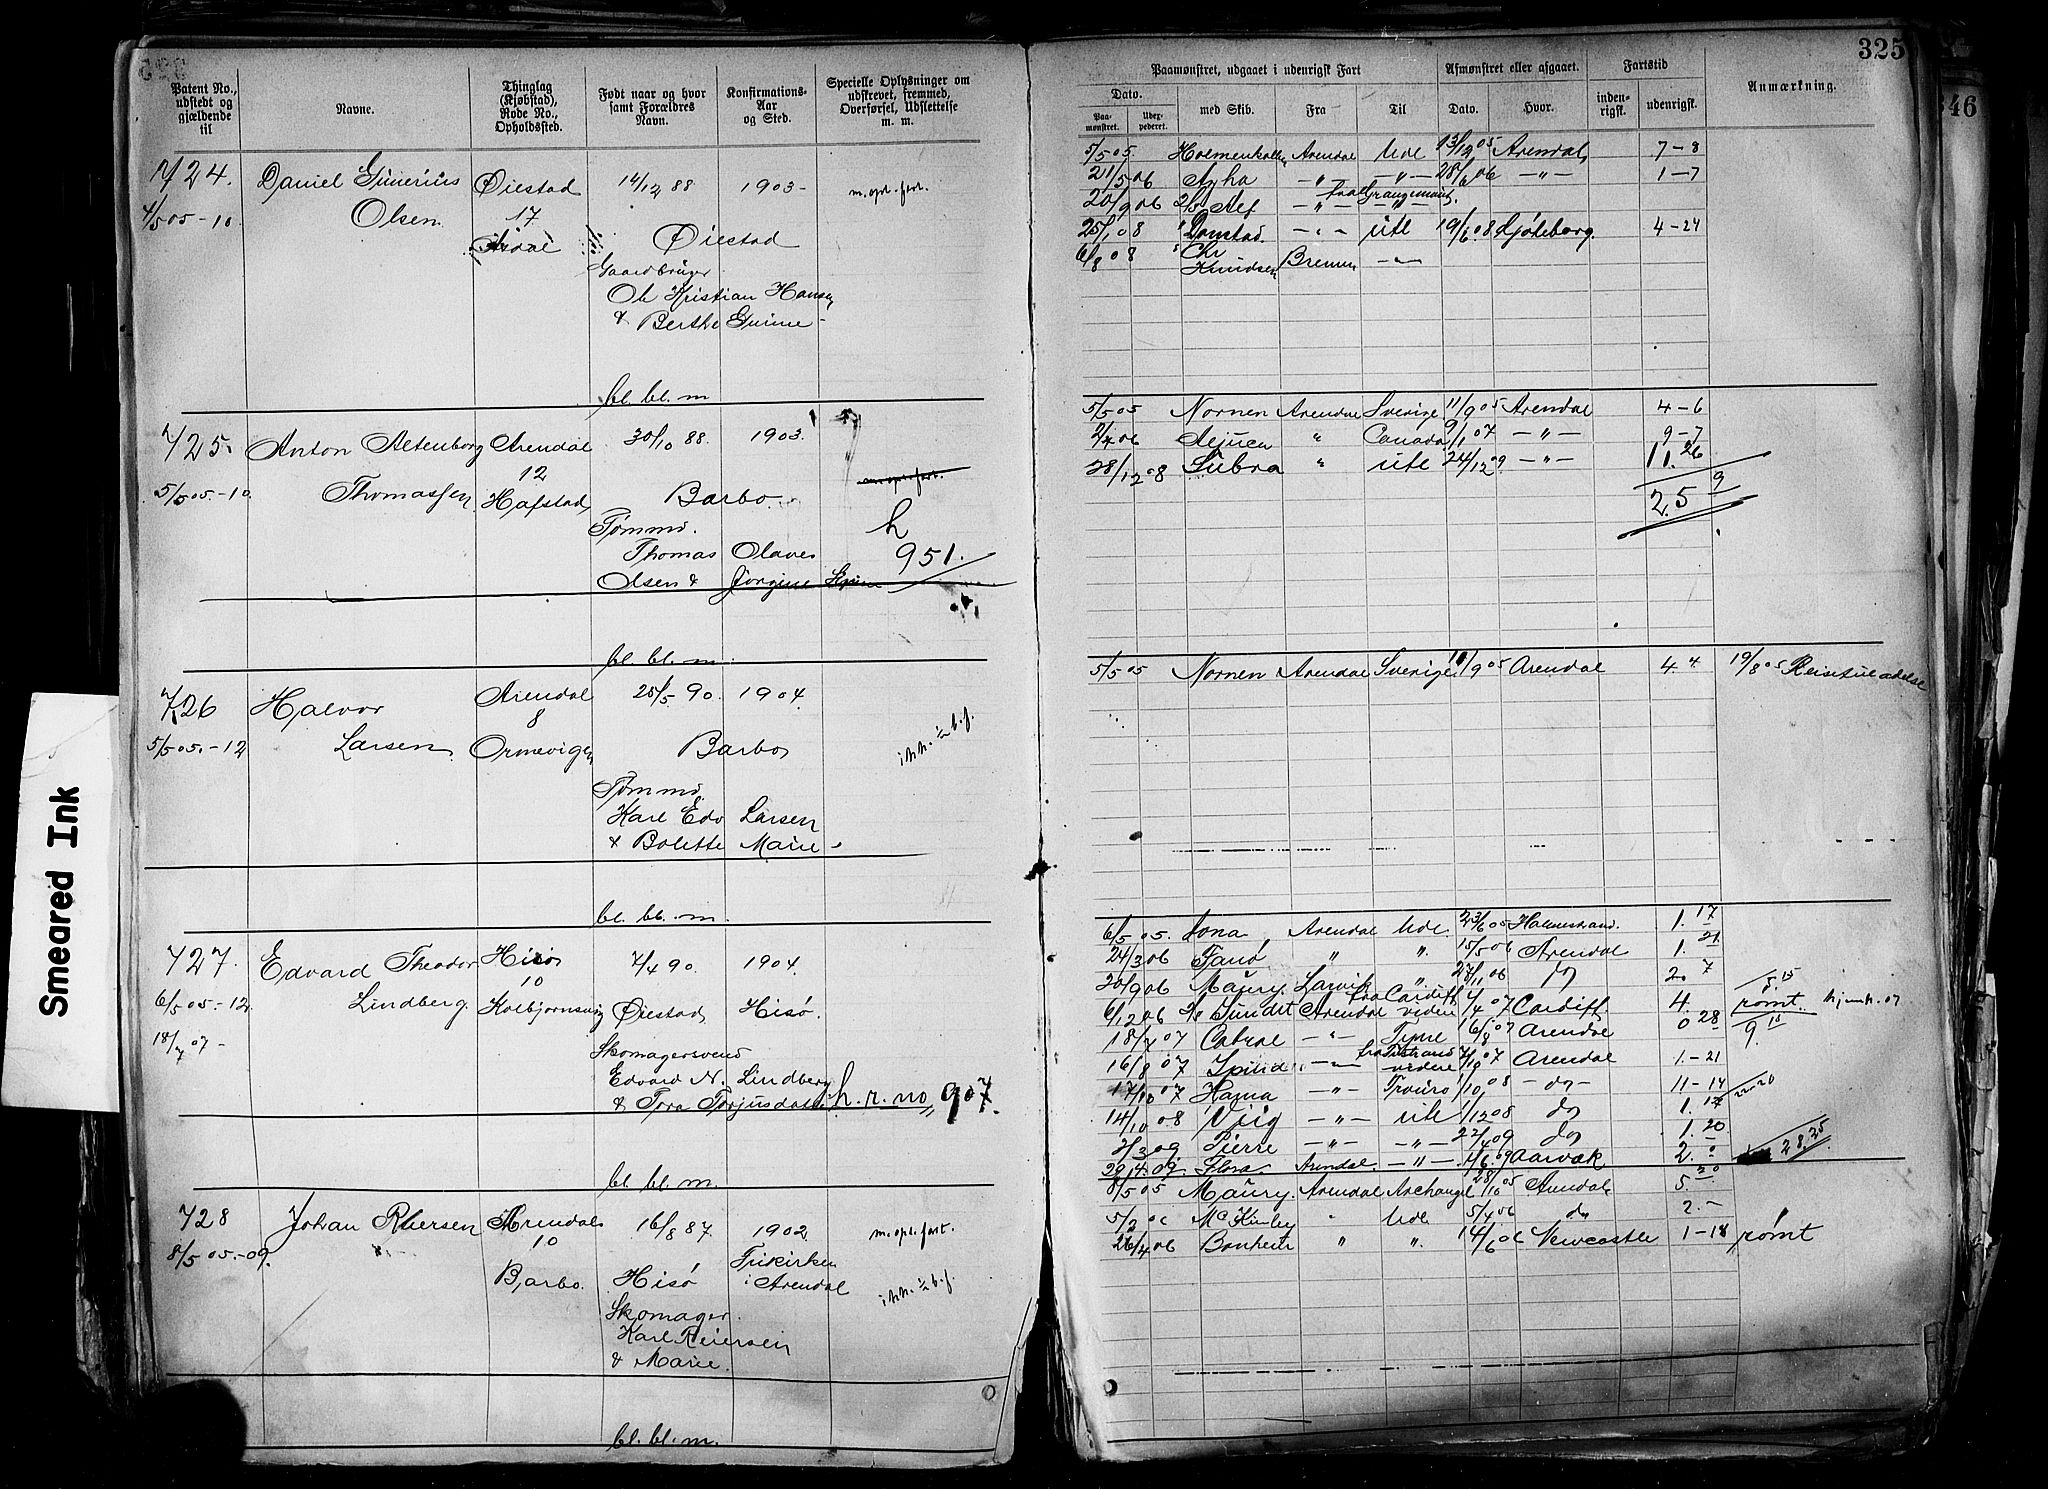 325
346
Patent No., udstedt og gjældende til
Navne.
Thinglag (Kjøbstad), Rode No., Opholdssted.
Født naar og hvor samt Forældres Navn.
Konfirmations-Aar og Sted.
Specielle Oplysninger om udskrevet, fremmed, Overførsel, Udslettelse m. m.
Paamønstret, udgaaet i udenrigsk Fart
Afmønstret eller afgaaet.
Fartstid
Anmærkning.
Dato.
Paamønstret.
Udexpederet.
med Skib.
Fra
Til
Dato.
Hvor.
indenrigsk.
udenrigsk.
724. Daniel Gunerius Øiestad 14/12 88 1903 m. opl. fart.
4/5 05-10 Olsen 17
Øiestad
Gaardbruger
Ole Kristian Hansen
& Berthe Gurine
bl. bl. m
5/5 05. Holmenkollen Arendal Ude 13/12 05 Arendal 7-8
21/5 06 Agha -"- -"- 28/6 06 -"- 1-7
fra Grangemout.
20/9 06 Alf -"-
25/1 08 Danstad. -"- ute 19/6 08 Gøteborg. 4-24
6/8 08 Chr Knudsen Bremen -"-
725. Anton Altenborg Arendal 30/10 88. 1903.
5/5 05-10 Thomassen 12
Hafstad Barbo.
Tømmd.
Thomas Olaves
Olsen & Jørgine
h
951.
bl. bl. m.
5/5 05 Nornen Arendal Sverige 11/9 05 Arendal 4-6
2/4 06 " Canada 9/1 07 -"- 9-7
28/12 08 " ute 24/12 09 -"- 11.26
25 9
726 Halvor Arendal 25/5 90. 1904.
5/5 05-12 Larsen 8
Ormevigen Barbo
i h.h. 1/2 b.f.
Tømmd.
Karl Edv Larsen
& Bolette Marie
bl. bl. m.
5/5 05 Nornen Arendal Sverige 11/9 05 Arendal 4.4 19/8 05 Reisetilladelse
727. Edvard Theodor Hisø 7/4 90. 1904.
6/5 05-12 Lindberg. 10
Kolbjornsvig Øiestad Hisø.
18/7 07-
Skomagersvend
Edvard N. Lindberg
& Tora Torjusdatter h. r. no 907.
bl. bl. m.
6/5 05. Arendal Ude. 23/6 05 Holmestrand. 1. 17
24/3 06 Fanø " ". 15/5 06 Arendal 1. 21
20/9 06 Maury. Larvik " 27/11 06 2. 7
fra Cardiff
6/12 06 Sundet Arendal videre 4/4 07 Cardiff. 4. rømt.
18/7 07 -"- Tyne 16/8 07 Arendal 0 28 9. 15
16/8 07 -"- videre 7/10 07 Arendal 1.-21
17/10 07 -"- 1/10 08 -do- 11-14 22.20
14/10 08 Viig -"- ute 1/12 08 do 1. 17
2/3 09 Pierre -"- -"- 22/4 09 do 1. 20 28.25
29/4 09. Flora Arendal -"- 1/6 09 Aarvak 2. 0
728 Johan Reiersen Arendal 16/8 87. 1902 m. opl. fart.
8/5 05-09. 10
Frikirken
Barbo. Hisø i Arendal
i h.h. 1/2 b.f.
Skomager.
Karl Reiersen
& Marie.
bl. bl. m.
8/5 05 Maury. Arendal Archangel 28/10 05 Arendal 5. 20
5/2 06 Mc Kinley " Ude 5/4 06 do 2.-
26/4 06 Bonheur " ". 14/6 06 Newcastle 1-18 rømt
Smeared Ink